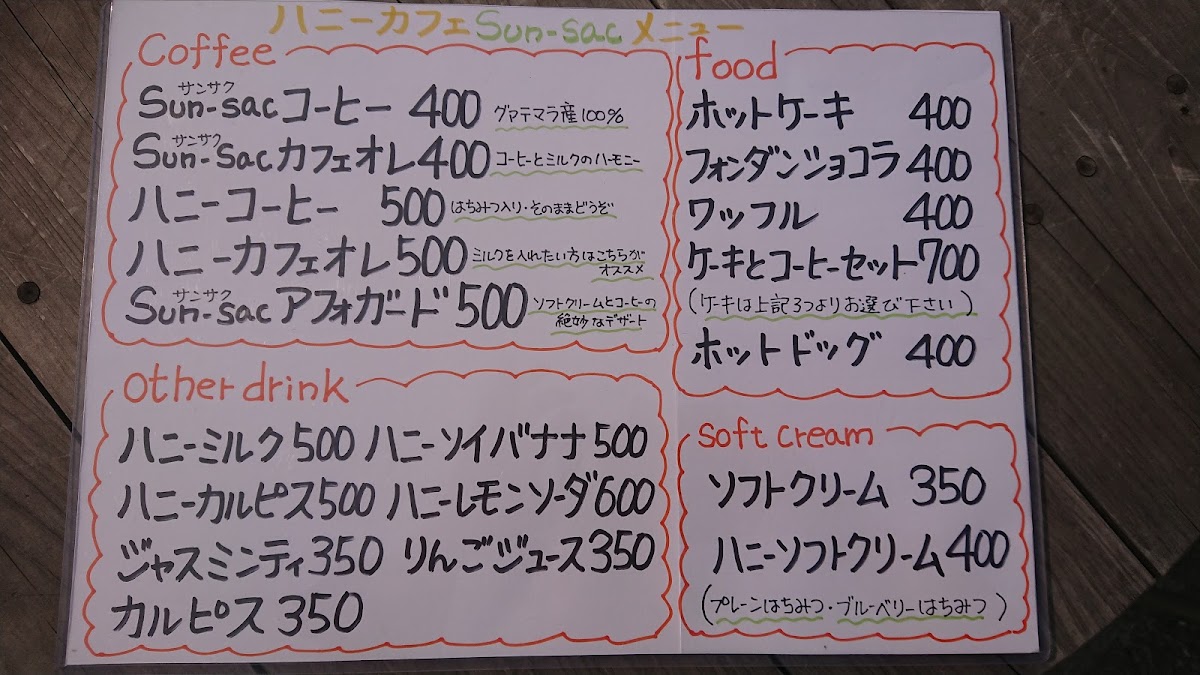 ハニーカフェSun-sacメニュー
Coffee
サンサク
Sun-sacコーヒー 400 グァテマラ産100%
サンサク
Sun-sacカフェオレ400 コーヒーとミルクのハーモニー
ハニーコーヒー 500 はちみつ入り・そのままどうぞ
ハニーカフェオレ500 ミルクを入れたい方はこちらが
オススメ
サンサク
Sun-sacアフォガード500 ソフトクリームとコーヒーの
絶妙なデザート
other drink
ハニーミルク500 ハニーソイバナナ500
ハニーカルピス500 ハニーレモンソーダ600
ジャスミンティ350 りんごジュース350
カルピス350
food
ホットケーキ 400
フォンダンショコラ400
ワッフル 400
ケーキとコーヒーセット700
(ケーキは上記3つよりお選び下さい)
ホットドッグ 400
soft cream
ソフトクリーム 350
ハニーソフトクリーム400
(プレーンはちみつ・ブルーベリーはちみつ)